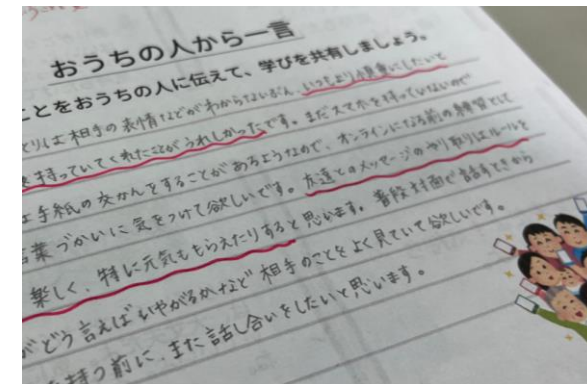 おうちの人から一言
ことをおうちの人に伝えて、学びを共有しましょう。
とりは相手の表情などがわからないぶん、いつもより慎重にしたいと
を持っていてくれたことがうれしかったです。まだスマホを持っていないので
は手紙の交かんをすることがあるようなので、オンラインになる前の練習として
言葉づかいに気をつけて欲しいです。友達とのメッセージのやり取りはルールを
楽しく、時に元気をもらえたりすると思います。普段対面で話すときから
がどう言えばいやがるかなど相手のことをよく見ていて欲しいです。
持つ前に、また話し合いをしたいと思います。